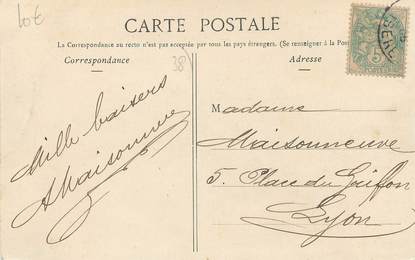 lot
CARTE POSTALE
La Correspondance au recto n'est pas acceptée par tous les pays étrangers. (Se renseigner à la Post
Correspondance
38
Adresse
5
ISÈRE
Mille baisers
AMaisonneuve
Madame
Maisonneuve
5, Place du Griffon
Lyon